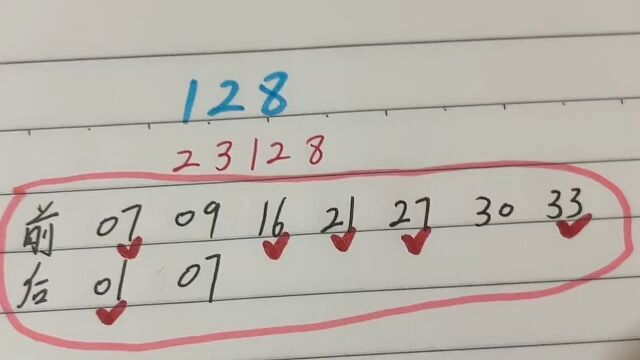 128
23128
前 07 09 16 21 27 30 33
后 01 07